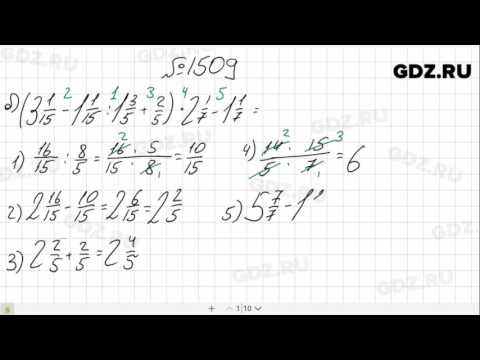 №1509
GDZ.RU
2 1 3 4 5
б) (3 1/15 - 1 1/15 : 1 3/5 + 2/5) · 2 1/7 - 1 1/7 =
1) 16/15 : 8/5 = 16 · 5 / 15 · 8 = 10/15
2
1
4) 14 · 15 / 5 · 7 = 6
2 3
1
2) 2 16/15 - 10/15 = 2 6/15 = 2 2/5
5) 5 7/7 - 1
3) 2 2/5 + 2/5 = 2 4/5
GDZ.RU
1 10